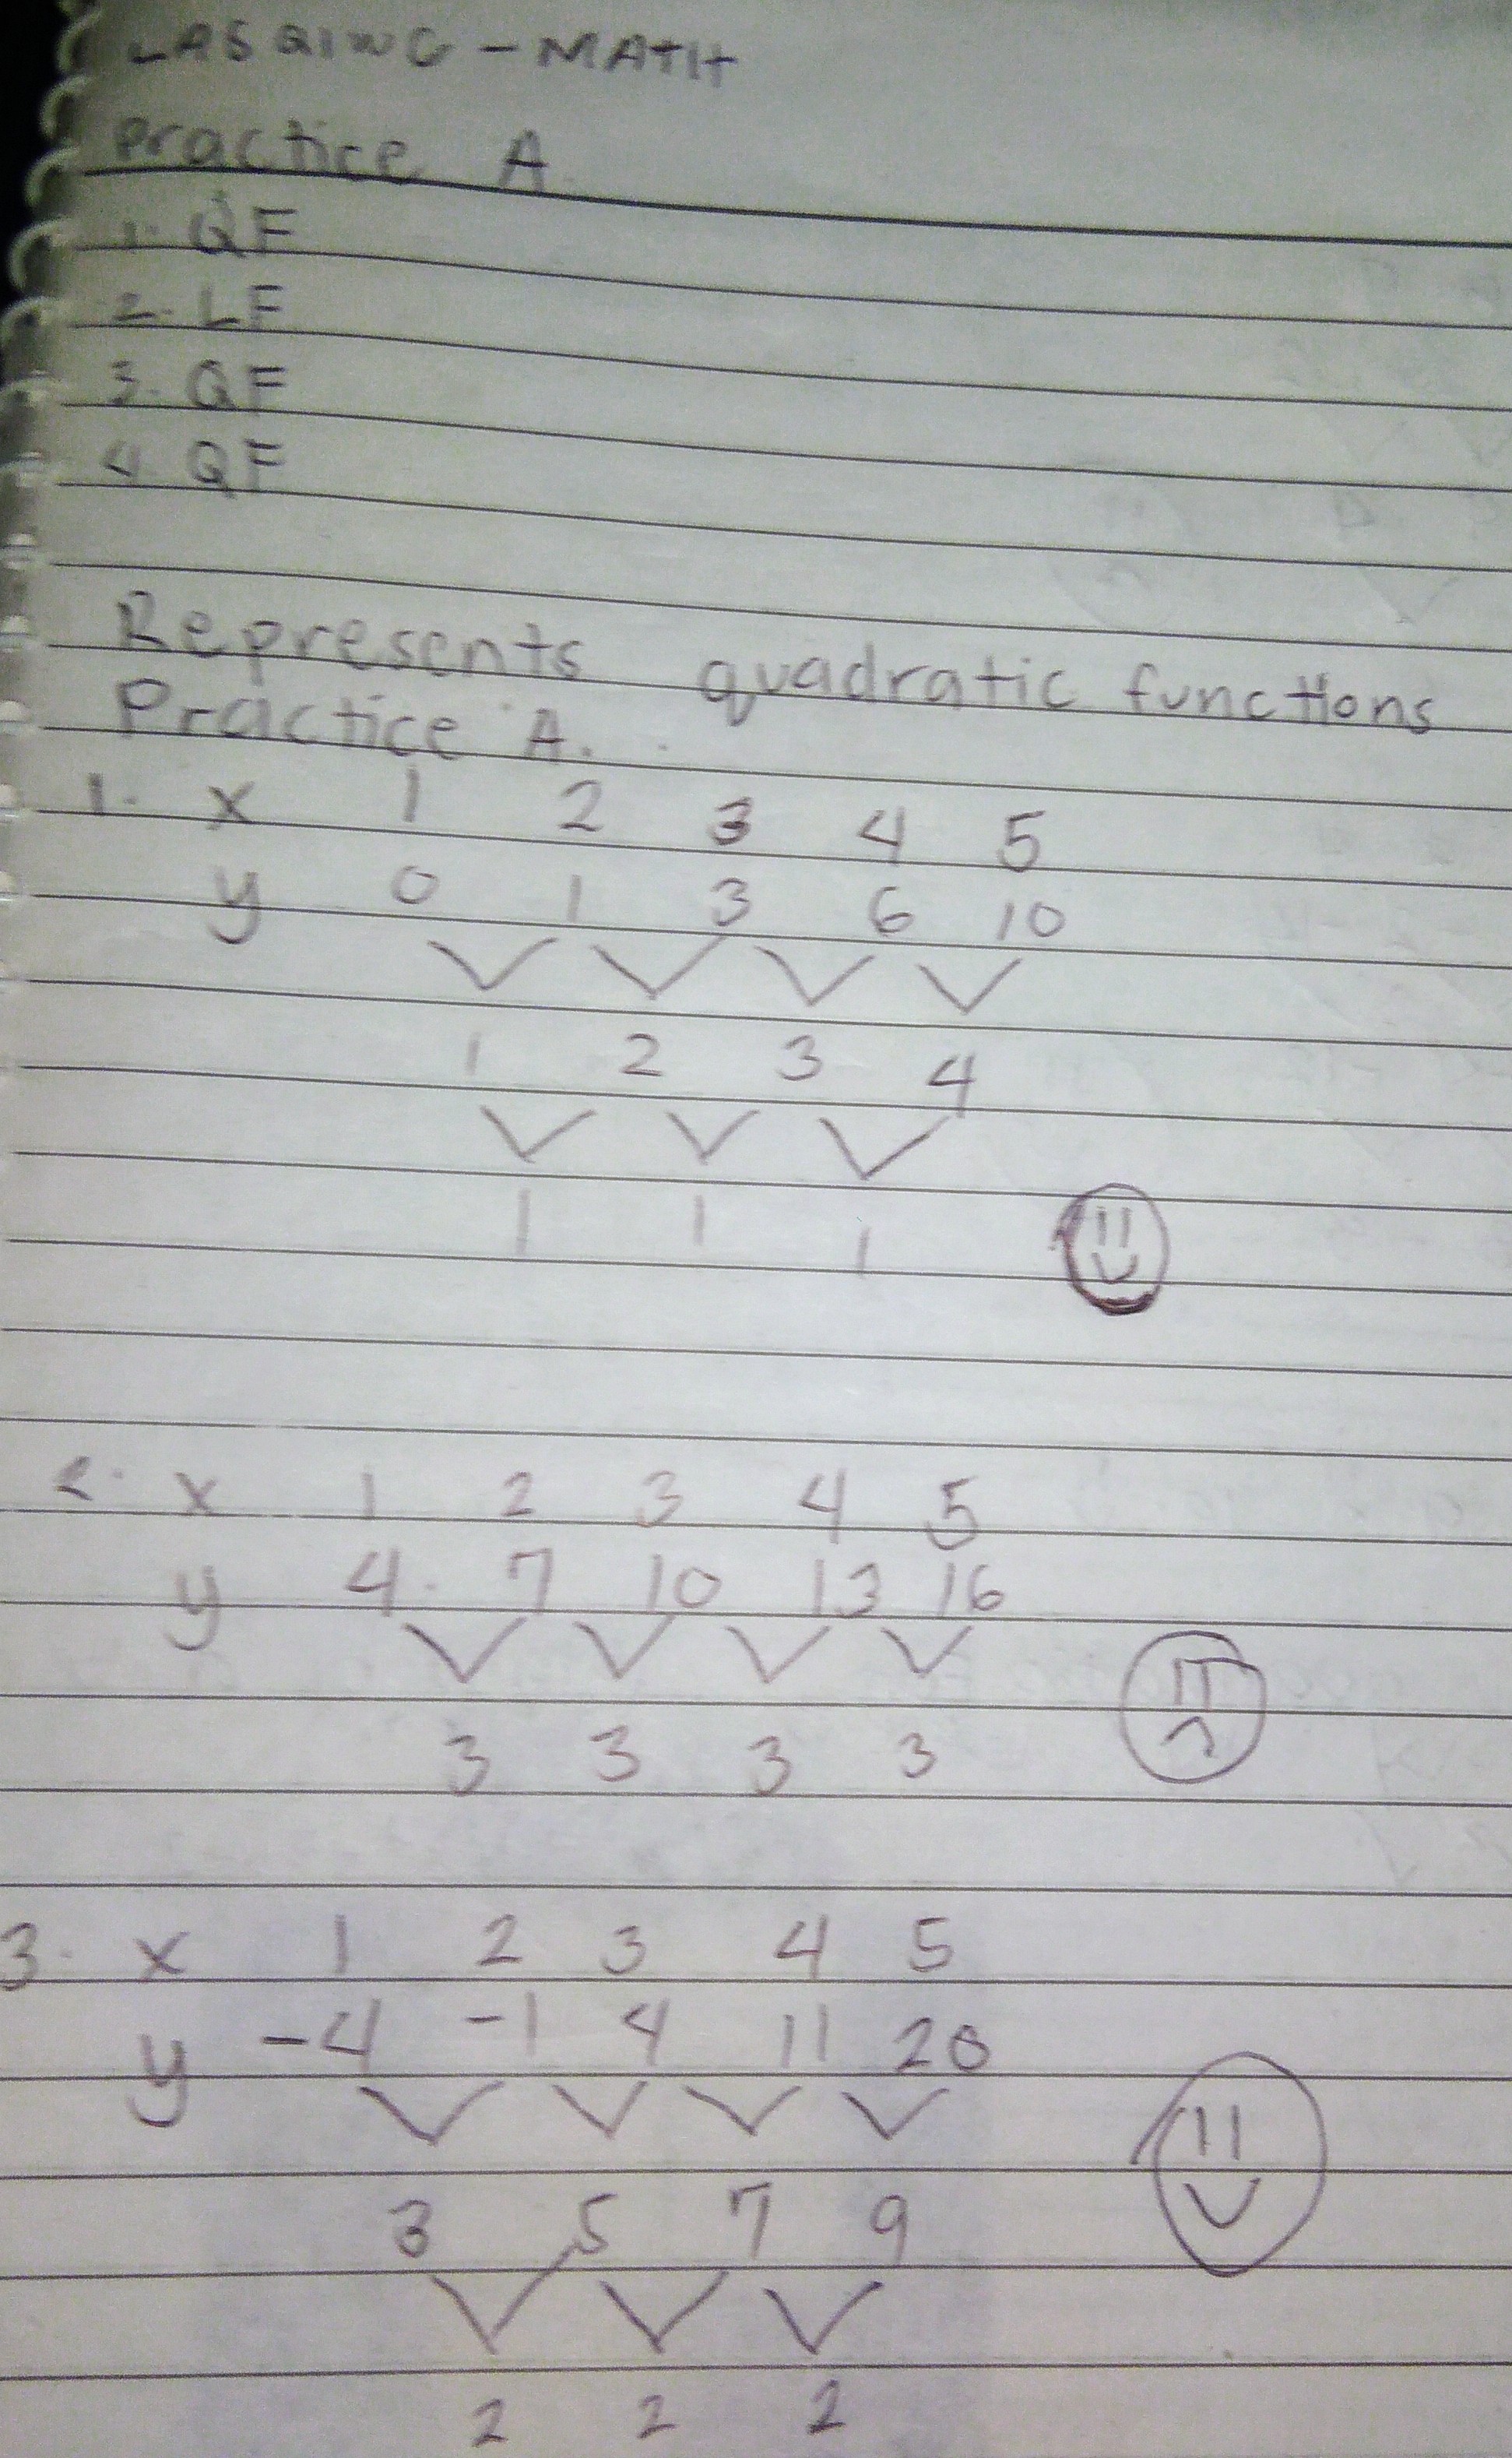 - MATH
Practice A
1. QF
2. LF
3. QF
4. QF
Represents quadratic functions
Practice A.
1. x 1 2 3 4 5
y 0 1 3 6 10
1 2 3 4
1 1 1
2. x 1 2 3 4 5
y 4 7 10 13 16
3 3 3 3
3. x 1 2 3 4 5
y -4 -1 4 11 20
3 5 7 9
2 2 2